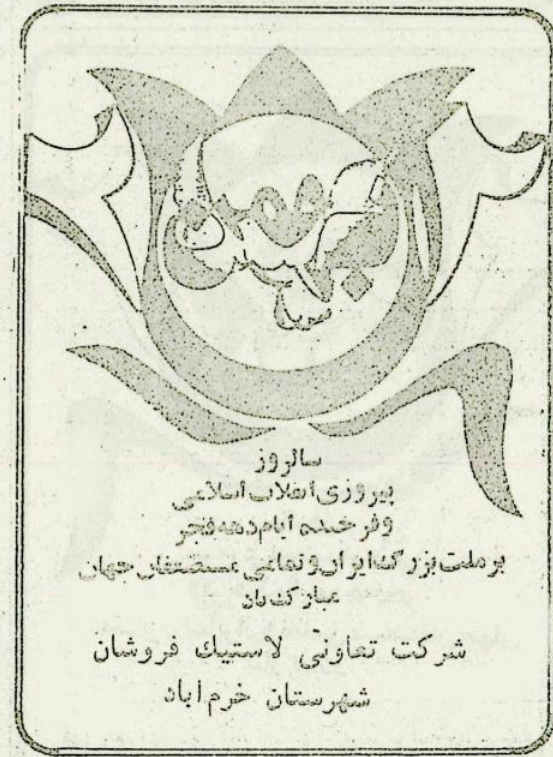 سالروز
پیروزی انقلاب اسلامی
وفرخنده ایام دهه فجر
بر ملت بزرگ ایران و تمامی مستضعفان جهان
مبارک باد
شرکت تعاونی لاستیک فروشان
شهرستان خرم آباد